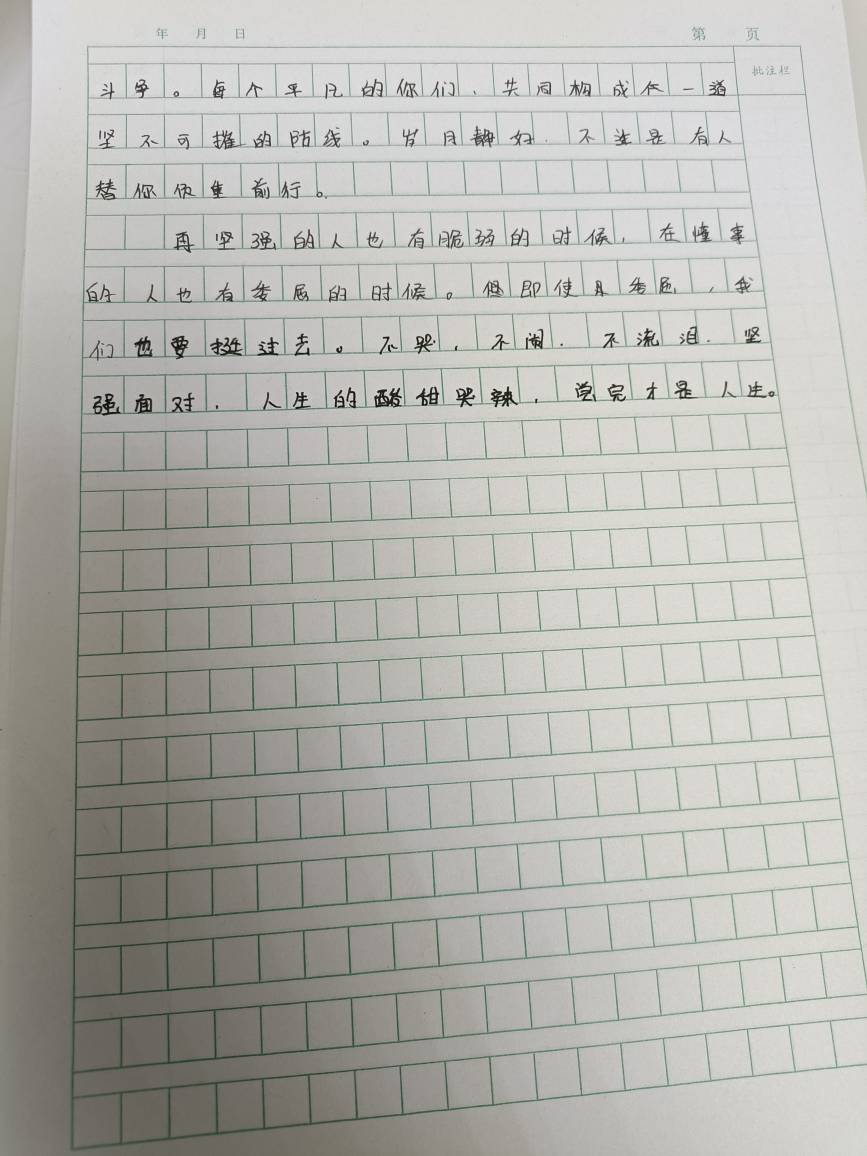 年 月 日
第 页
批注栏
斗争。每个平凡的你们，共同构成在一道
坚不可摧的防线。岁月静好，不过是有人
替你负重前行。
再坚强的人也有脆弱的时候，在懂事
的人也有委屈的时候。但即使是委屈，我
们也要挺过去。不哭，不闹，不流泪，坚
强面对，人生的酸甜哭辣，尝完才是人生。